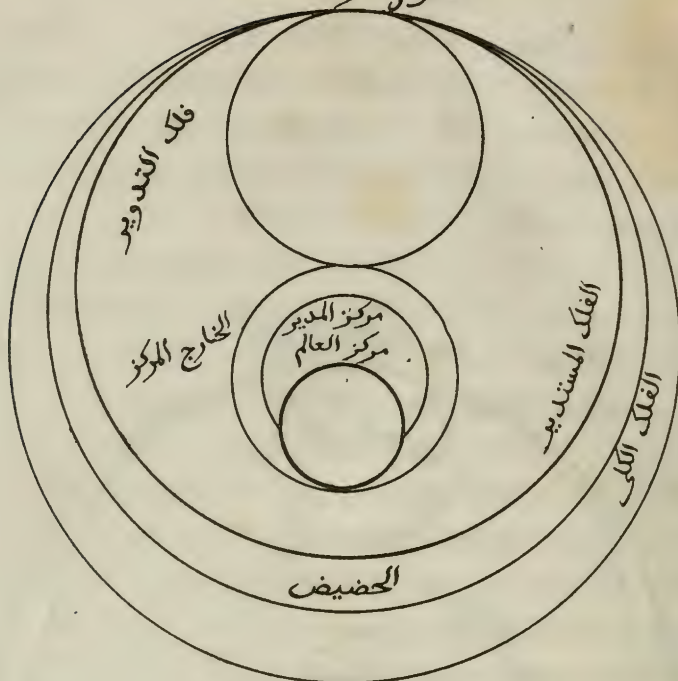 فلك التدوير
الخارج المركز
مركز المدير
مركز العالم
الفلك المستدير
الفلك الكلى
الحضيض